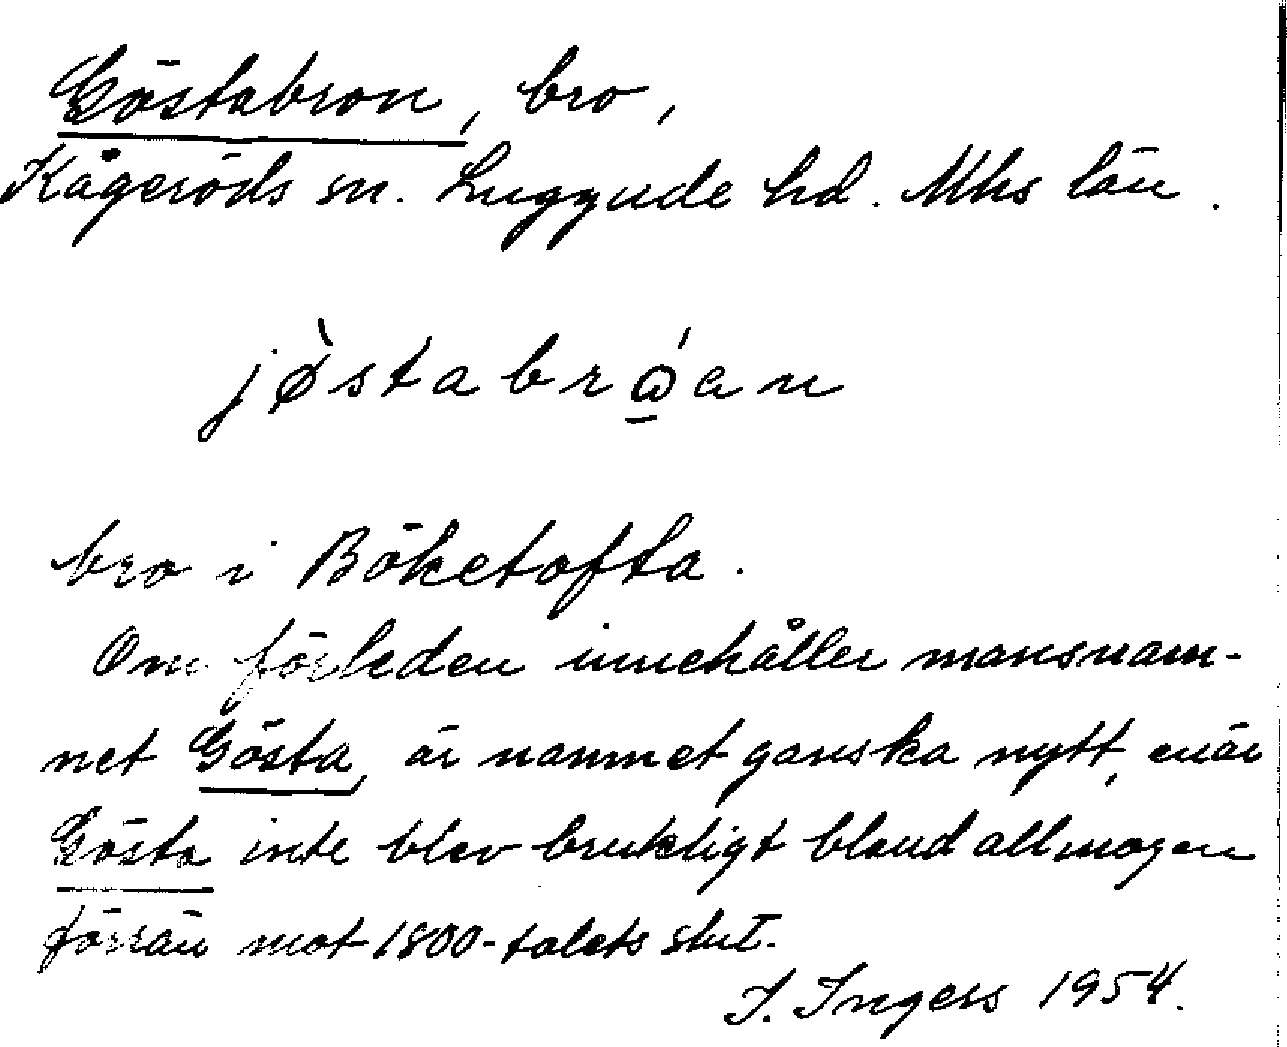 Göstabron, bro,
Kågeröds sn. Luggude hd. Mhs län.
jø̀stabrǫ́an
bro i Böketofta.
Om förleden innehåller mansnam-
net Gösta, är namnet ganska nytt, enär
Gösta inte blev brukligt bland allmogen
förrän mot 1800-talets slut.
I. Ingers 1954.